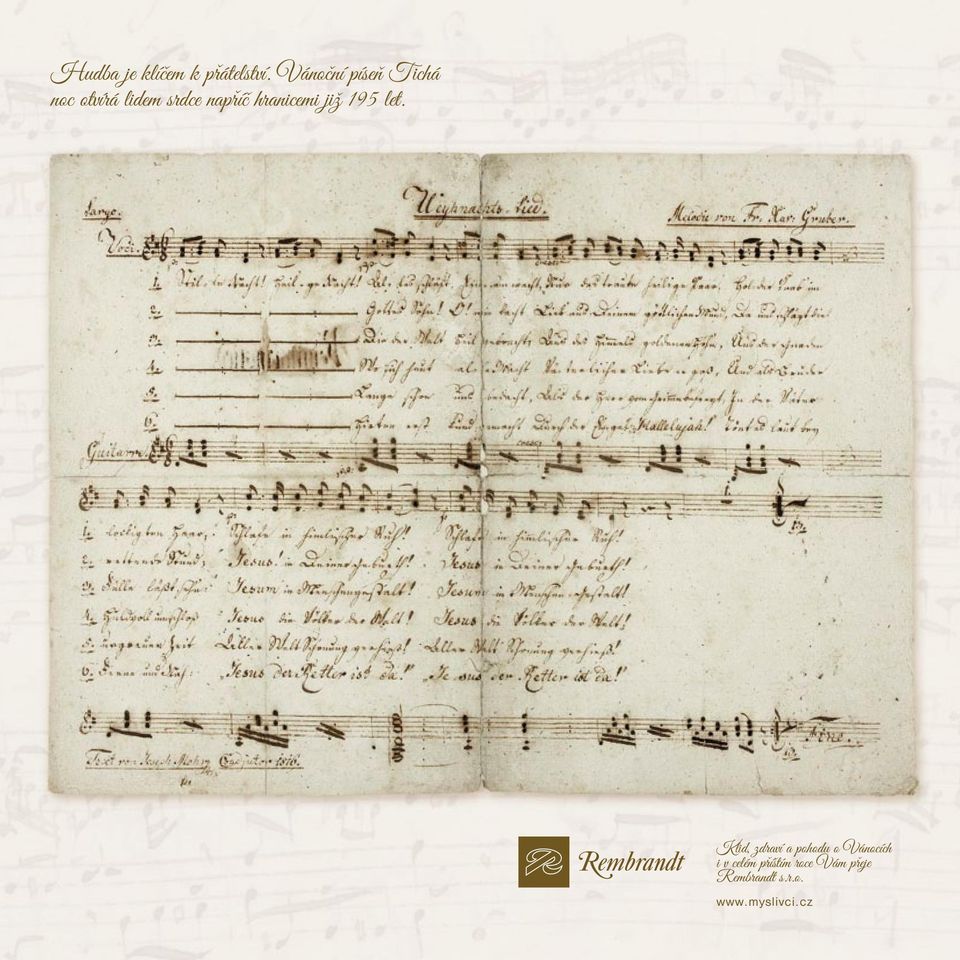 Hudba je klíčem k přátelství. Vánoční píseň Tichá
noc otvírá lidem srdce napříč hranicemi již 195 let.
Largo.
Weyhnachts-Lied.
Melodie von Fr. Xav: Gruber.
Voci.
1. Stille Nacht! Heilige Nacht! Alles schläft, Einsam wacht, Nur das traute heilige Paar. Holder Knab im
2. Gottes Sohn! O! wie lacht Lieb aus Deinem göttlichen Mund, Da uns schlägt die
3. Die der Welt Heil gebracht; Aus des Himmels goldenen Höhn,
4. Wo sich heut alle Macht Väterlicher Liebe ergoß, Und als Bruder
5. Lange schon uns bedacht, Als der Herr vom Grimme befreyt, In der Väter
6. Hirten erst kund gemacht Durch der Engel Hallelujah! Tönt es laut bey
Guitarre.
1. lockigten Haar; Schlafe in himlischer Ruh! Schlafe in himlischer Ruh!
2. rettende Stund; Jesus! in Deiner Geburth! Jesus in Deiner Geburth!
3. Fülle läßt sehn: Jesum in Menschengestalt! Jesum in Menschengestalt!
4. Huldvoll umschloß Jesus die Völker der Welt! Jesus die Völker der Welt!
5. urgrauer Zeit Aller Welt Schonung verhieß! Aller Welt Schonung verhieß!
6. Ferne und Nah: "Jesus der Retter ist da!" "Jesus der Retter ist da!"
Fine.
Text von Joseph Mohr Coadjutor 1816.
Rembrandt
Klid, zdraví a pohodu o Vánocích
i v celém příštím roce Vám přeje
Rembrandt s.r.o.
www.myslivci.cz